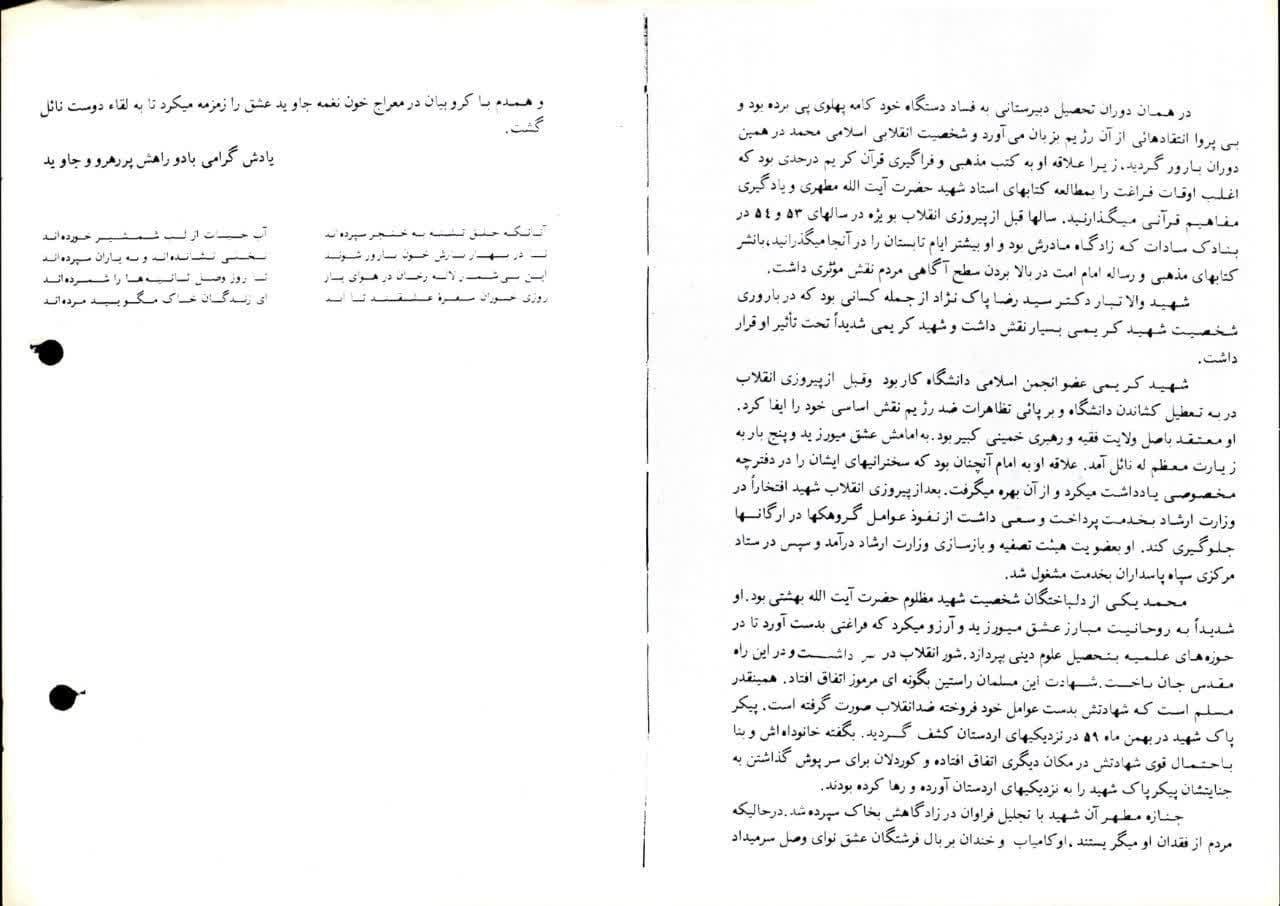 در همان دوران تحصیل دبیرستانی به فساد دستگاه خود کامه پهلوی پی برده بود و
بی پروا انتقادهائی از آن رژیم بزبان می آورد و شخصیت انقلابی اسلامی محمد در همین
دوران بارور گردید، زیرا علاقه او به کتب مذهبی و فراگیری قرآن کریم درحدی بود که
اغلب اوقات فراغت را بمطالعه کتابهای استاد شهید حضرت آیت الله مطهری و یادگیری
مفاهیم قرآنی میگذارنید. سالها قبل از پیروزی انقلاب بویژه در سالهای ۵۳ و ۵٤ در
بنادک سادات که زادگاه مادرش بود و او بیشتر ایام تابستان را در آنجا میگذرانید، بانشر
کتابهای مذهبی و رساله امام امت در بالا بردن سطح آگاهی مردم نقش مؤثری داشت.
شهید والا تبار دکتر سید رضا پاک نژاد از جمله کسانی بود که در باروری
شخصیت شهید کریمی بسیار نقش داشت و شهید کریمی شدیداً تحت تأثیر او قرار
داشت.
شهید کریمی عضو انجمن اسلامی دانشگاه کار بود وقبل از پیروزی انقلاب
در به تعطیل کشاندن دانشگاه و برپائی تظاهرات ضد رژیم نقش اساسی خود را ایفا کرد.
او معتقد باصل ولایت فقیه و رهبری خمینی کبیر بود. به امامش عشق میورزید و پنج بار به
زیارت معظم له نائل آمد. علاقه او به امام آنچنان بود که سخنرانیهای ایشان را در دفترچه
مخصوصی یادداشت میکرد و از آن بهره میگرفت. بعداز پیروزی انقلاب شهید افتخاراً در
وزارت ارشاد بخدمت پرداخت و سعی داشت از نفوذ عوامل گروهکها در ارگانها
جلوگیری کند. او بعضویت هیئت تصفیه و بازسازی وزارت ارشاد درآمد و سپس در ستاد
مرکزی سپاه پاسداران بخدمت مشغول شد.
محمد یکی از دلباختگان شخصیت شهید مظلوم حضرت آیت الله بهشتی بود. او
شدیداً به روحانیت مبارز عشق میورزید و آرزو میکرد که فراغتی بدست آورد تا در
حوزه های علمیه بتحصیل علوم دینی بپردازد. شور انقلاب در سر داشت و در این راه
مقدس جان باخت. شهادت این مسلمان راستین بگونه ای مرموز اتفاق افتاد. همینقدر
مسلم است که شهادتش بدست عوامل خود فروخته ضدانقلاب صورت گرفته است. پیکر
پاک شهید در بهمن ماه ۵۹ در نزدیکیهای اردستان کشف گردید. بگفته خانوداه اش و بنا
باحتمال قوی شهادتش در مکان دیگری اتفاق افتاده و کوردلان برای سرپوش گذاشتن به
جنایتشان پیکر پاک شهید را به نزدیکیهای اردستان آورده و رها کرده بودند.
جنازه مطهر آن شهید با تجلیل فراوان در زادگاهش بخاک سپرده شد. درحالیکه
مردم از فقدان او میگریستند، او کامیاب و خندان بر بال فرشتگان عشق نوای وصل سرمیداد
و همدم با کروبیان در معراج خون نغمه جاوید عشق را زمزمه میکرد تا به لقاء دوست نائل
گشت.
یادش گرامی باد و راهش پررهرو و جاوید
آنانکه حلق تشنه به خنجر سپرده اند آب حیات از لب شمشیر خورده اند
تا در بهار بارش خون بارور شوند نخلی نشانده اند و به یاران سپرده اند
این بی شمار لاله رخان در هوای یار تا روز وصل ثانیه ها را شمرده اند
روزی خوران سفرهٔ عشقند تا ابد ای زندگان خاک مگویید مرده اند